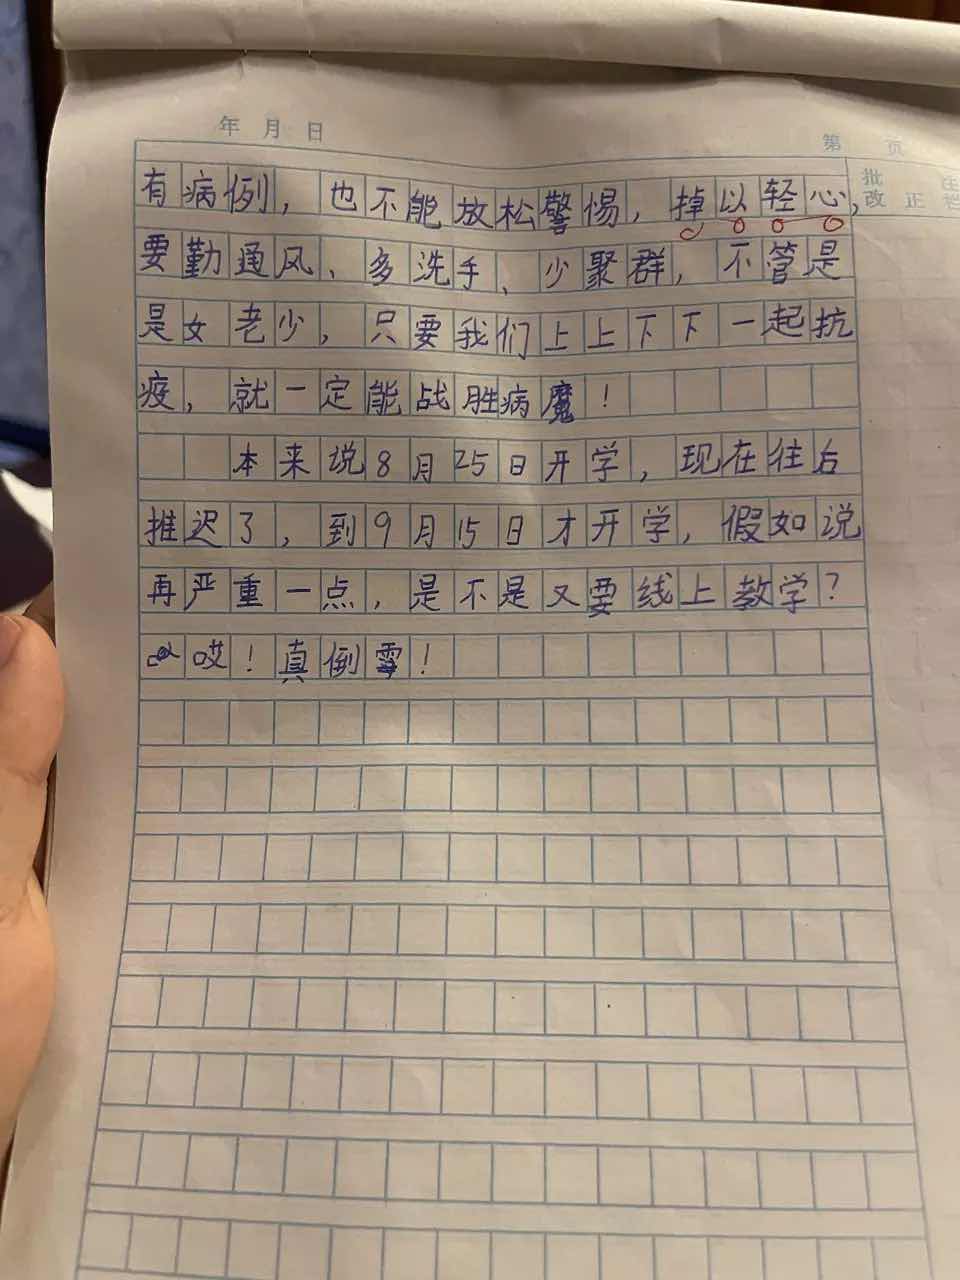 年 月 日
第 页
批 注
改 正 栏
有病例，也不能放松警惕，掉以轻心，
要勤通风、多洗手、少聚群，不管是
是女老少，只要我们上上下下一起抗
疫，就一定能战胜病魔！
本来说8月25日开学，现在往后
推迟了，到9月15日才开学，假如说
再严重一点，是不是又要线上教学？
哎！真倒霉！